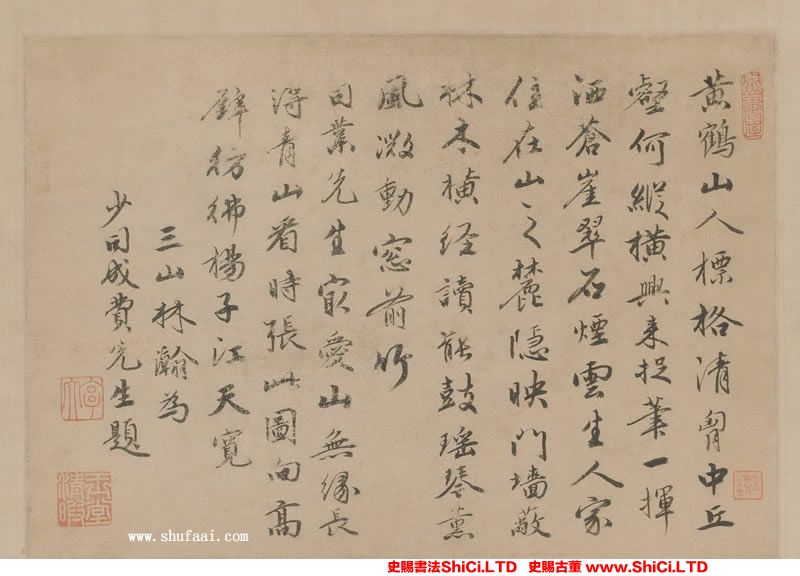 黄鶴山人標格清胷中丘
壑何縱橫興来捉筆一揮
洒蒼崖翠石煙雲生人家
住在山之麓隐映門墙蔽
林木横经讀罷鼓瑶琴薰
風微動窓前竹
司業先生冣愛山無缘長
得青山看時張此圖向髙
壁彷彿楊子江天寛
三山林瀚為
少司成費先生題
玉堂清暇
www.shufaai.com
史賜書法ShiCi.LTD 史賜古董 www.ShiCi.LTD